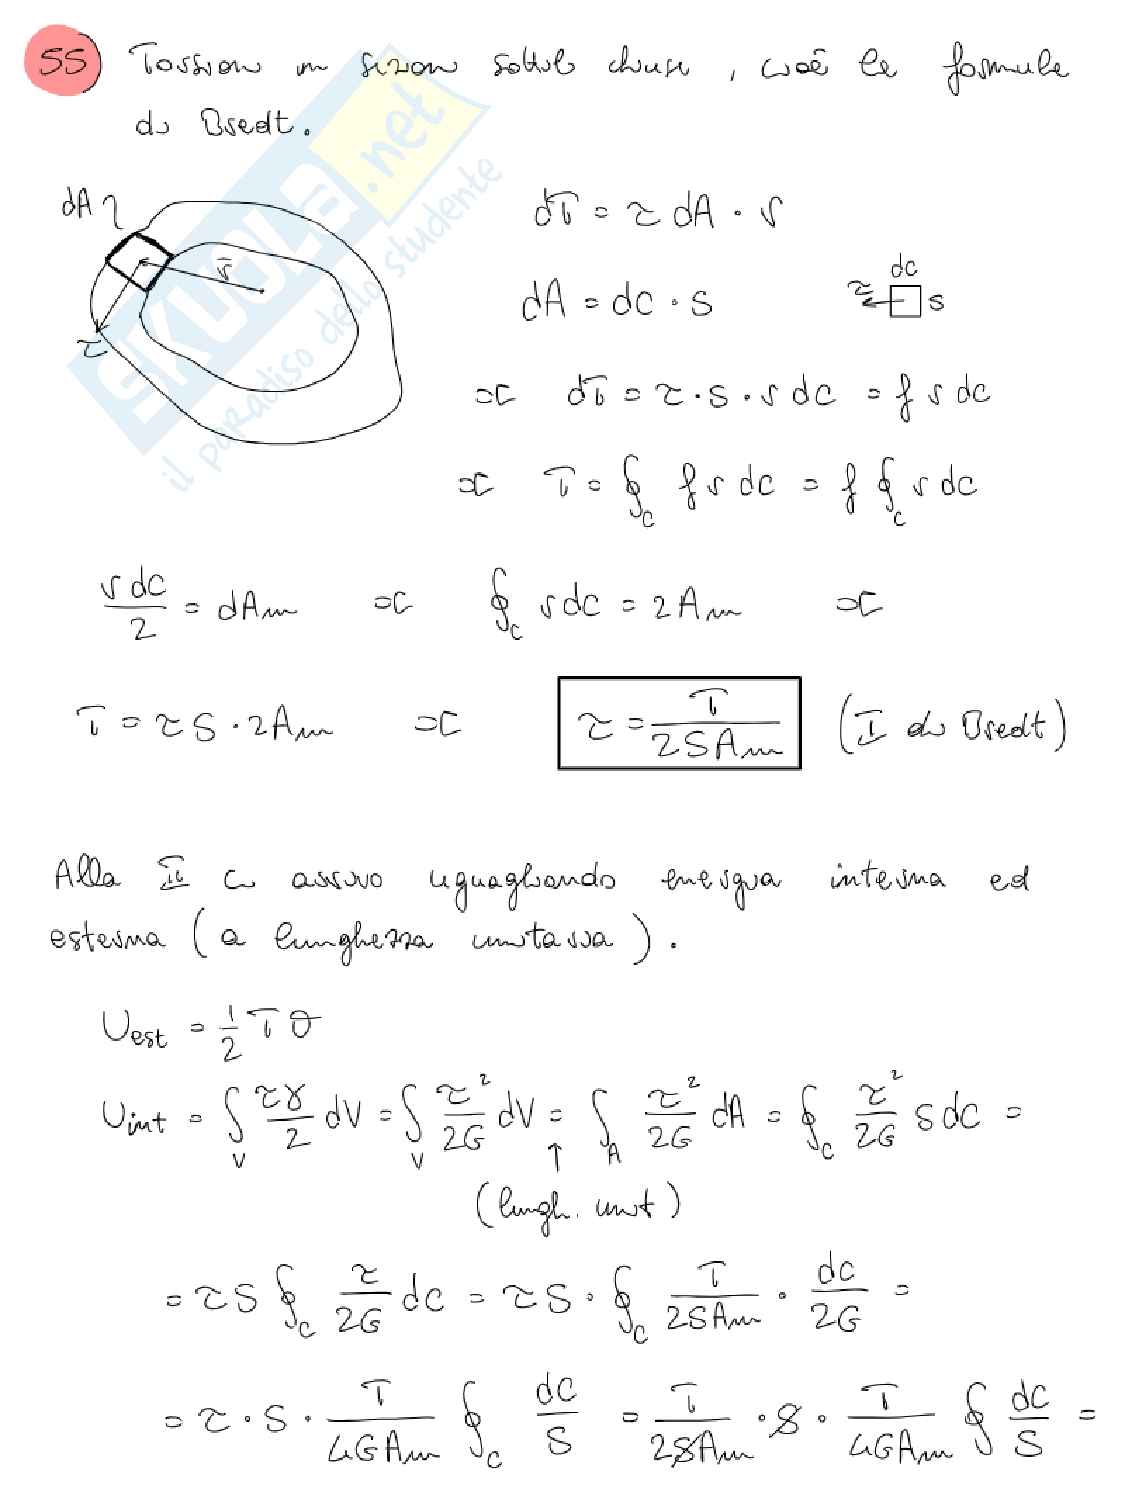 55) Torsione in sezioni sottili chiuse, cioè le formule
di Bredt.
dA
r
τ
dT = τ dA · r
dA = dc · s
dc
τ
s
=> dT = τ · s · r dc = f r dc
=> T = ∮_C f r dc = f ∮_C r dc
r dc / 2 = dAm => ∮_C r dc = 2Am =>
T = τ s · 2Am => τ = T / 2sAm (I di Bredt)
Alla II ci arrivo uguagliando energia interna ed
esterna (a lunghezza unitaria).
Uest = 1/2 T θ
Uint = ∫_V τγ/2 dV = ∫_V τ²/2G dV = ∫_A τ²/2G dA = ∮_C τ²/2G s dc =
↑
(lungh. unit)
= τ s ∮_C τ/2G dc = τ s · ∮_C T/2sAm · dc/2G =
= τ · s · T/4GAm ∮_C dc/s = T/2sAm · s · T/4GAm ∮ dc/s =
SKUOLA.net
il paradiso dello studente